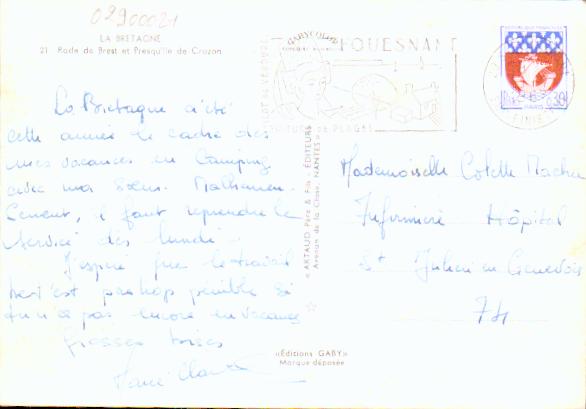 02900021
LA BRETAGNE
21 Rade de Brest et Presqu'île de Crozon
La Bretagne a été
cette année le cadre des
mes vacances en Camping
avec ma Sœur. Malheureu-
sement, il faut reprendre le
service dès lundi.
J'espère que le travail
ne t'est pas trop pénible si
tu n'es pas encore en vacances
Grosses bises
Marie Claude
GABYCOLOR
FOUESNANT
DE PLAGES
PARIS
0,30
« ARTAUD Père & Fils - ÉDITEURS
Avenue de la Close, NANTES »
Mademoiselle Colette
Infirmière Hôpital
St Julien en Genevois
74
«Éditions GABY»
Marque déposée